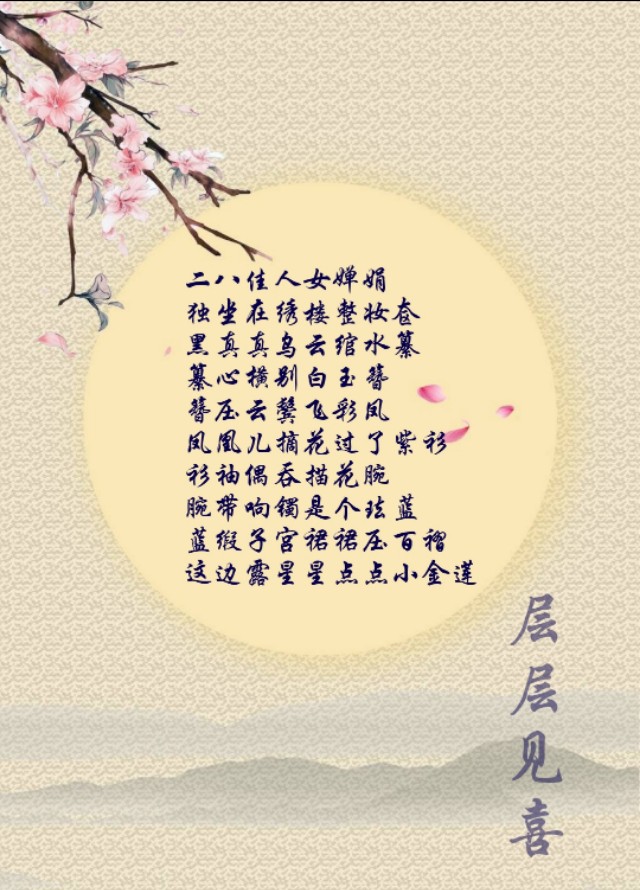 二八佳人女婵娟
独坐在绣楼整妆奁
黑真真乌云绾水纂
纂心横别白玉簪
簪压云鬓飞彩凤
凤凰儿摘花过了紫衫
衫袖偶吞描花腕
腕带响镯是个玹蓝
蓝缎子宫裙裙压百褶
这边露星星点点小金莲
层层见喜